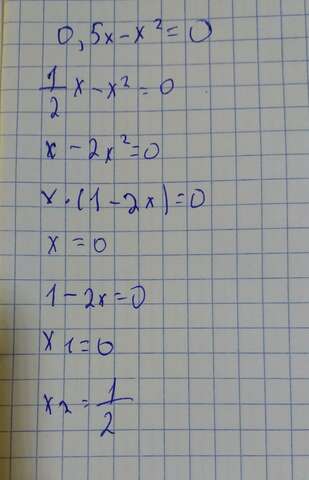 0,5x-x²=0
1/2 x-x²=0
x-2x²=0
x·(1-2x)=0
x=0
1-2x=0
x1=0
x2=1/2